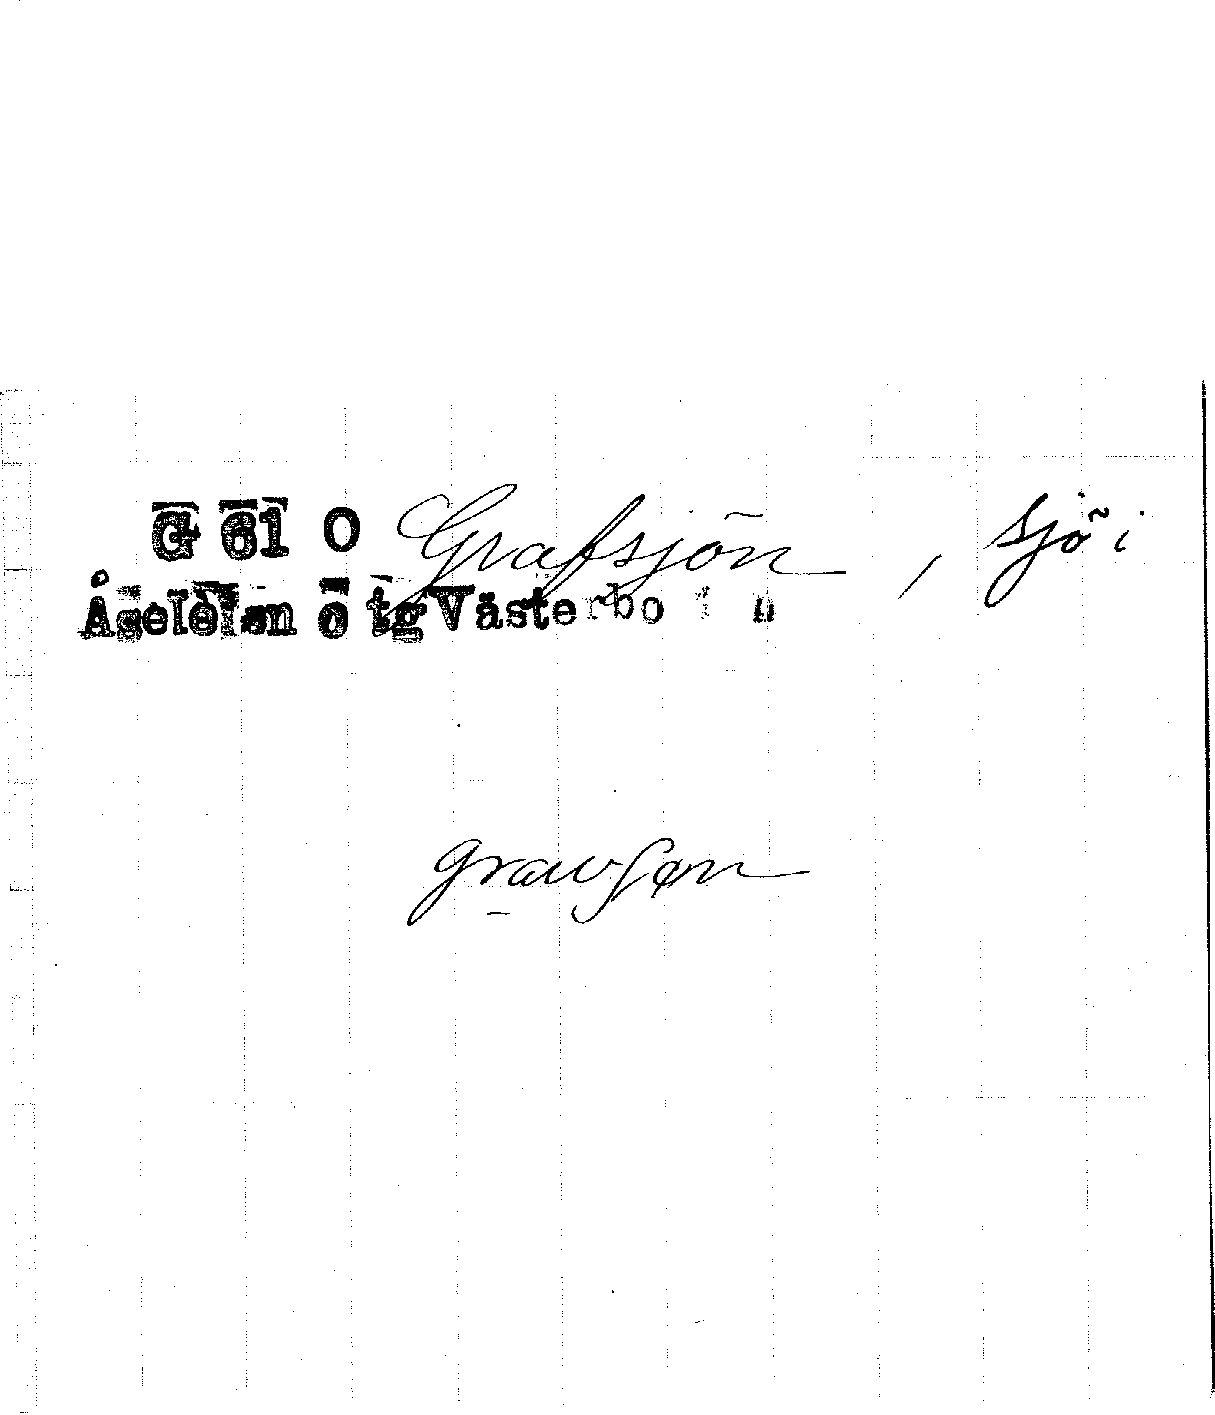 G 61 O Grafsjön, sjö i
Åsele o tg Västerbo
grawsøn